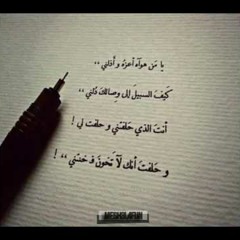 يا مَن هواه أعزهُ و أذلني ،،
كَيفَ السبيلَ إلى وصالكَ دُلني ،،
أنتَ الذي حَلفتني و حلفت لي !
و حَلفتَ أنكَ لآ تَخونَ فـ خنتني ،، !